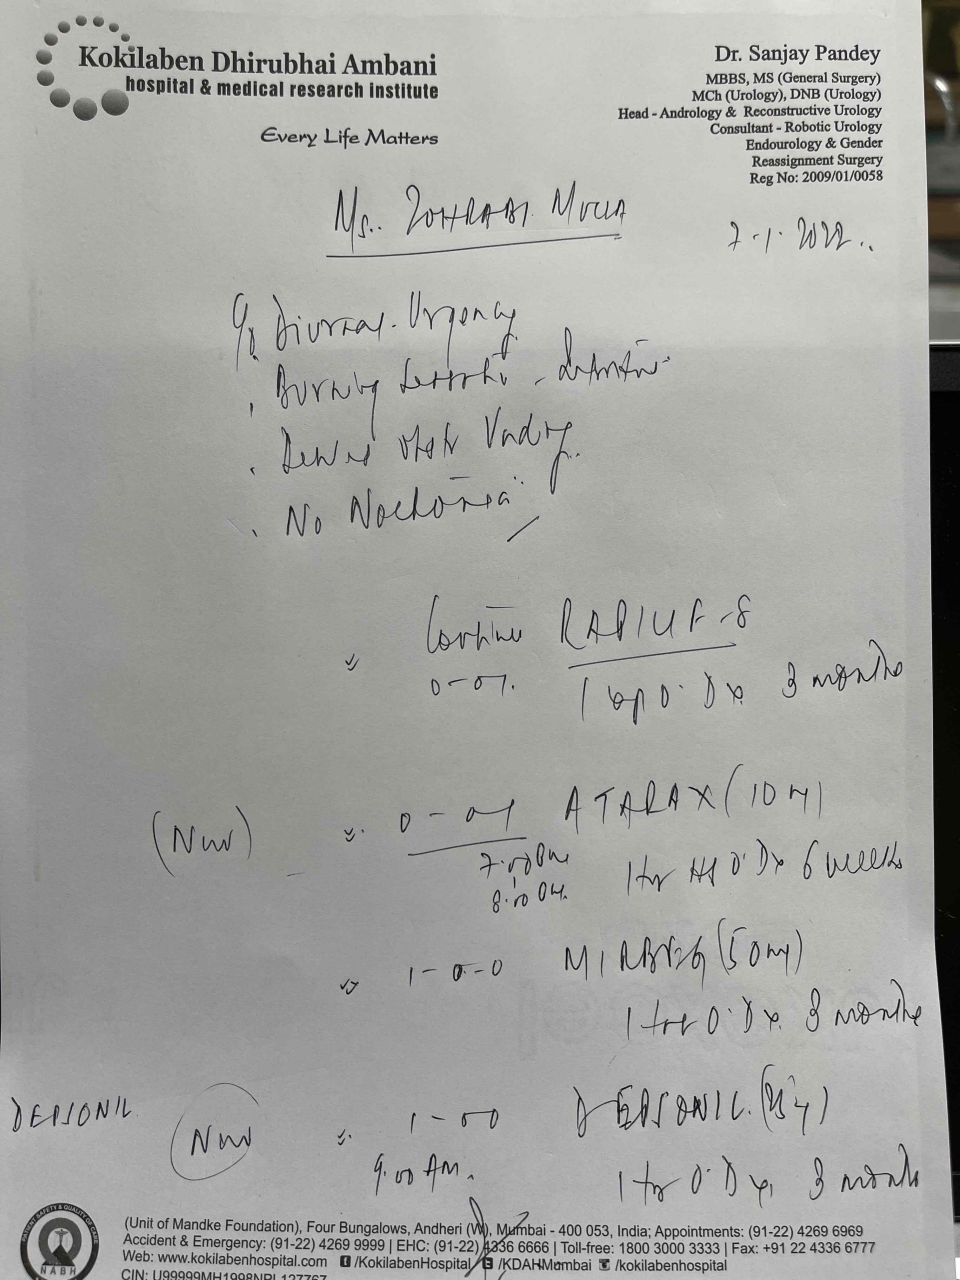 Kokilaben Dhirubhai Ambani
hospital & medical research institute
Every Life Matters
Dr. Sanjay Pandey
MBBS, MS (General Surgery)
MCh (Urology), DNB (Urology)
Head - Andrology & Reconstructive Urology
Consultant - Robotic Urology
Endourology & Gender
Reassignment Surgery
Reg No: 2009/01/0058
Ms. ZOHRABI MULLA
7.1.2022..
c/o Diurnal Urgency
Burning
Voiding
No Nocturia
Continue RAPILIF-8
0-0-1. 1 cap O.D x 3 months
(New) 0-0-1 ATARAX (10 mg)
7.00 Pm 1 tab HS O.D x 6 weeks
8.00 Pm.
1-0-0 MIRABEG (50 mg)
1 tab O.D x 3 months
DEPSONIL New 1-0-0 DEPSONIL (25 mg)
9.00 AM. 1 tab O.D x 3 months
PATIENT SAFETY & QUALITY OF CARE
NABH
(Unit of Mandke Foundation), Four Bungalows, Andheri (W), Mumbai - 400 053, India; Appointments: (91-22) 4269 6969
Accident & Emergency: (91-22) 4269 9999 | EHC: (91-22) 4336 6666 | Toll-free: 1800 3000 3333 | Fax: +91 22 4336 6777
Web: www.kokilabenhospital.com /KokilabenHospital /KDAHMumbai /kokilabenhospital
CIN: U99999MH1998NPL127767